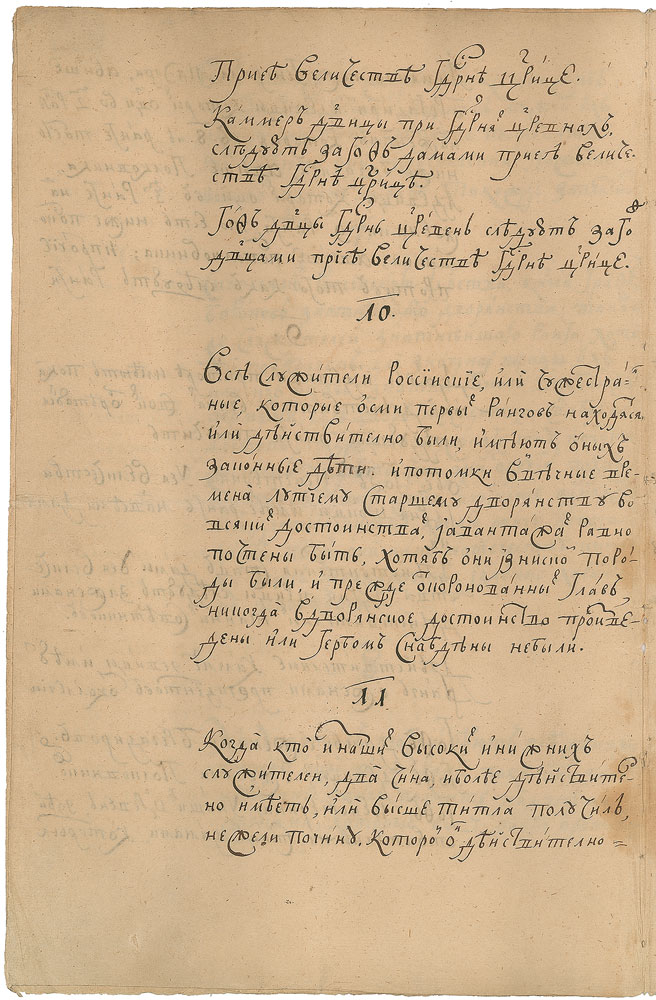 При ея величествѣ Гдрнѣ цр҃ице.
Каммеръ дѣвицы при Гдрня цревнахъ,
слѣдуютъ за Гофъ дамами при ея величе-
ствѣ Гдрнѣ цр҃ицѣ.
Гофъ дв҃цы Гдрнь цревень слѣдуютъ за Гоф
дв҃цами при ея величествѣ Гдрнѣ цр҃ице.
10.
Всѣ служители россїиские, или чужестра-
ные, которые осми первых рангов находятся
или дѣиствително были, имѣютъ оныхъ
законные дѣти. и потомки в вѣчные вре-
мена лутчему старшему дворянству во
всяких достоинствах, и авантажах равно
почтены быть, хотябъ они и з ниской поро-
ды были, и прежде от коронованных Главъ,
никогда в дворянское достоинство произве-
дены или гербомъ снабдѣны небыли.
11
Когда кто из наших высоких и нижнихъ
служителеи, два чина, и болѣе дѣиствите-
но имѣетъ, или высше титла получилъ,
нежели по чину, которой он дѣиствително